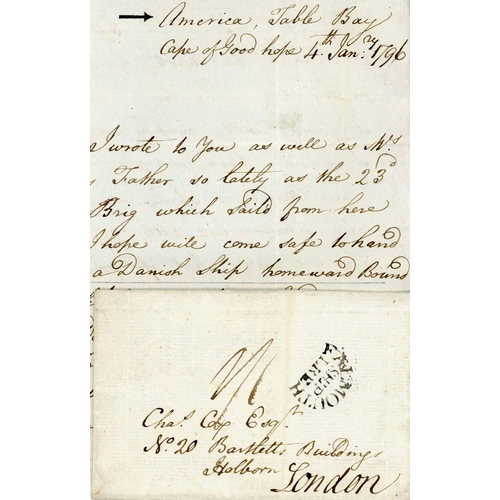 America, Table Bay
Cape of Good hope 4th Jan:ry 1796
I wrote to You as well as Mrs
s Father so lately as the 23d
Brig which Saild from here
I hope will come safe to hand
a Danish Ship homeward Bound
YARMOUTH
SHIP
LRE
Chas. Cox Esqr.
No. 20 Bartletts Buildings
Holborn
London